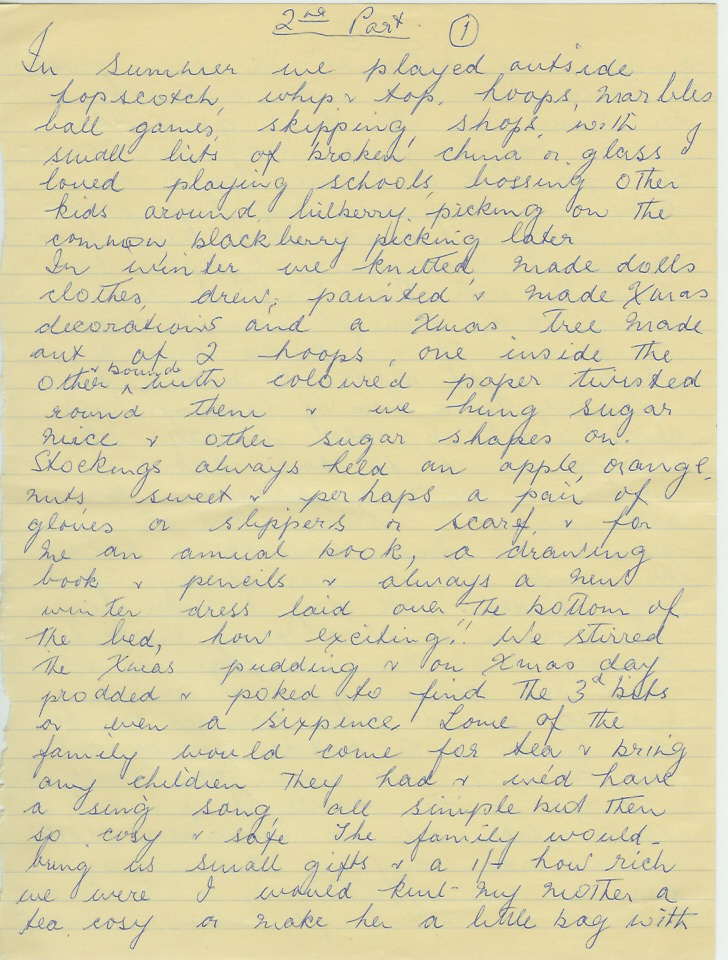 2nd Part 1
In summer we played outside
hopscotch, whip & top, hoops, marbles
ball games, skipping, shops, with
small bits of broken china or glass I
loved playing schools, bossing other
kids around, bilberry picking on the
common blackberry picking later
In winter we knitted, made dolls
clothes, drew, painted & made Xmas
decorations and a Xmas Tree made
out of 2 hoops, one inside the
other & bound with coloured paper twisted
round them & we hung sugar
mice & other sugar shapes on.
Stockings always held an apple, orange,
nuts sweet & perhaps a pair of
gloves or slippers or scarf, & for
me an annual book, a drawing
book & pencils & always a new
winter dress laid over the bottom of
the bed, how exciting!! We stirred
the Xmas pudding & on Xmas day
prodded & poked to find the 3d bits
or even a sixpence. Some of the
family would come for tea & bring
any children they had & we'd have
a sing song, all simple but then
so cosy & safe The family would
bring us small gifts & a 1/- how rich
we were I would knit my mother a
tea cosy or make her a little bag with